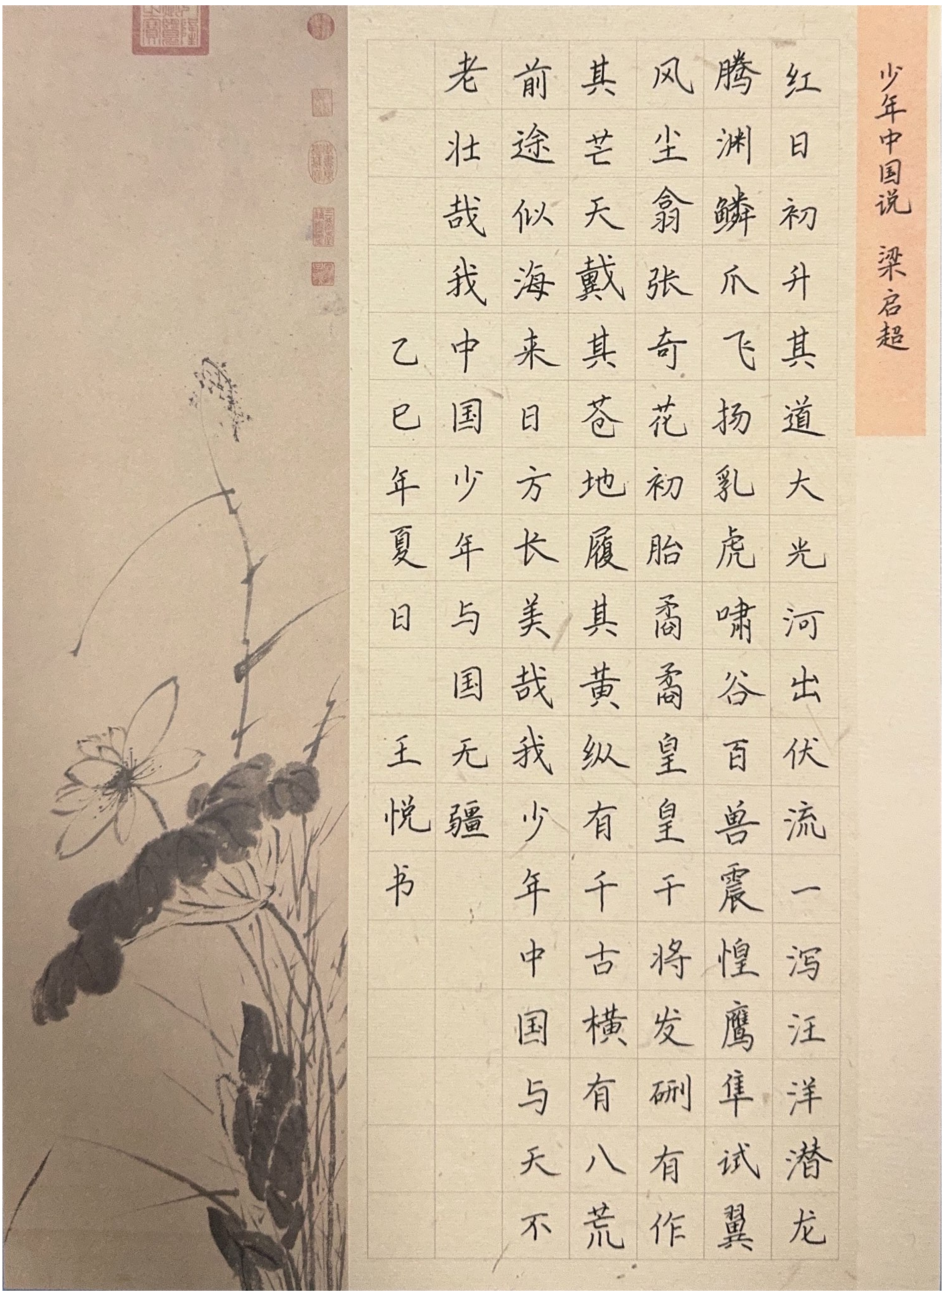 少年中国说 梁启超
红日初升其道大光河出伏流一泻汪洋潜龙
腾渊鳞爪飞扬乳虎啸谷百兽震惶鹰隼试翼
风尘翕张奇花初胎矞矞皇皇干将发硎有作
其芒天戴其苍地履其黄纵有千古横有八荒
前途似海来日方长美哉我少年中国与天不
老壮哉我中国少年与国无疆
乙巳年夏日 王悦书